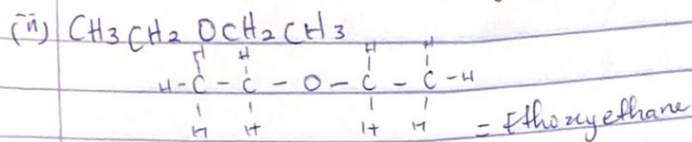 (ii) CH3CH2OCH2CH3
H H H H
H-C - C - O - C - C -H
H H H H = Ethoxyethane